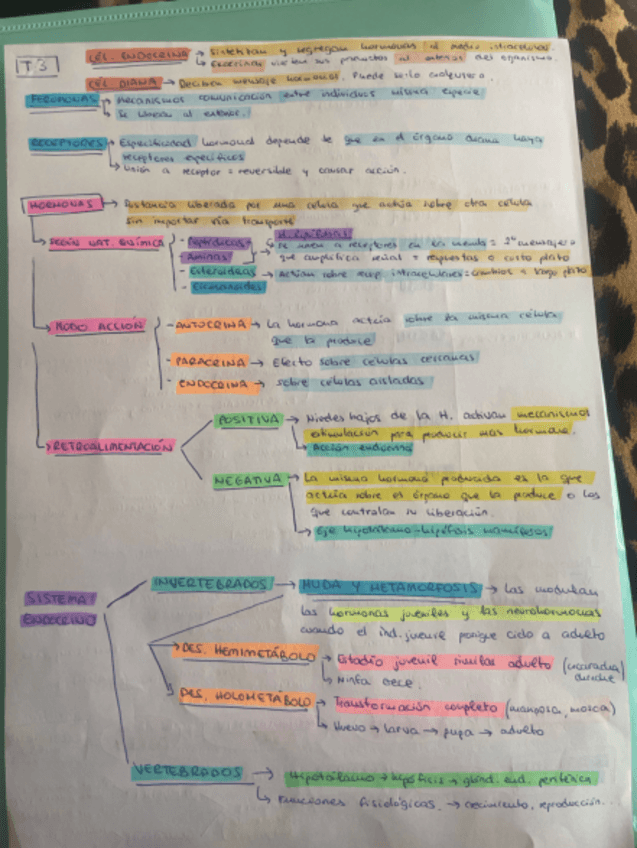 T.3
CÉL. ENDOCRINA → Sintetizan y segregan hormonas al medio intracelular.
→ Exocrinas vierten sus productos al exterior del organismo.
CÉL DIANA → Reciben mensaje hormonal. Puede serlo cualquiera.
FEROMONAS → Mecanismos comunicación entre individuos misma especie
→ Se liberan al exterior.
RECEPTORES → Especificidad hormonal depende de que en el órgano diana haya
receptores específicos
→ Unión a receptor = reversible y causar acción.
HORMONAS → Sustancia liberada por una célula que actúa sobre otra célula
sin importar vía transporte
→ SEGÚN NAT. QUÍMICA
- Peptídicas
- Aminas
→ Se unen a receptores en la memb = 2º mensajero
que amplifica señal = respuestas a corto plazo
- Esteroideas → Actúan sobre recep. intracelulares = cambios a largo plazo
- Eicosanoides
→ MODO ACCIÓN
- AUTOCRINA → La hormona actúa sobre la misma célula
que la produce
- PARACRINA → Efecto sobre células cercanas
- ENDOCRINA → sobre células aisladas
→ RETROALIMENTACIÓN
POSITIVA → Niveles bajos de la H. activan mecanismos
estimulación para producir más hormona.
→ Acción endocrina
NEGATIVA → La misma hormona producida es la que
actúa sobre el órgano que la produce o los
que controlan su liberación.
→ Eje hipotálamo-hipófisis mamíferos
SISTEMA
ENDOCRINO
INVERTEBRADOS → MUDA Y METAMORFOSIS → Las modulan
las hormonas juveniles y las neurohormonas
cuando el ind. juvenil ponigue ciclo a adulto
→ DES. HEMIMETÁBOLO → Estadío juvenil similar adulto (cucaracha,
→ Ninfa crece.
→ DES. HOLOMETÁBOLO → Transformación completo (mariposa, mosca)
→ Huevo → larva → pupa → adulto
VERTEBRADOS → Hipotálamo → hipófisis → glánd. end. periférica
→ Funciones fisiológicas. → crecimiento, reproducción...